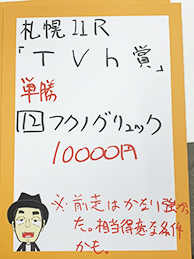 札幌11R
「TVh賞」
単勝
12 フクノグリュック
10000円
※前走はかなり強かっ
た。相当得意な条件
かも。